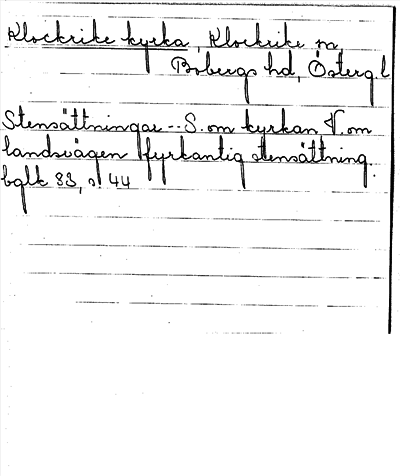 Klockrike kyrka, Klockrike sn,
Bobergs hd, Österg.l
Stensättningar -- S. om kyrkan, V. om
landsvägen fyrkantig stensättning.
bglk 83, s. 44